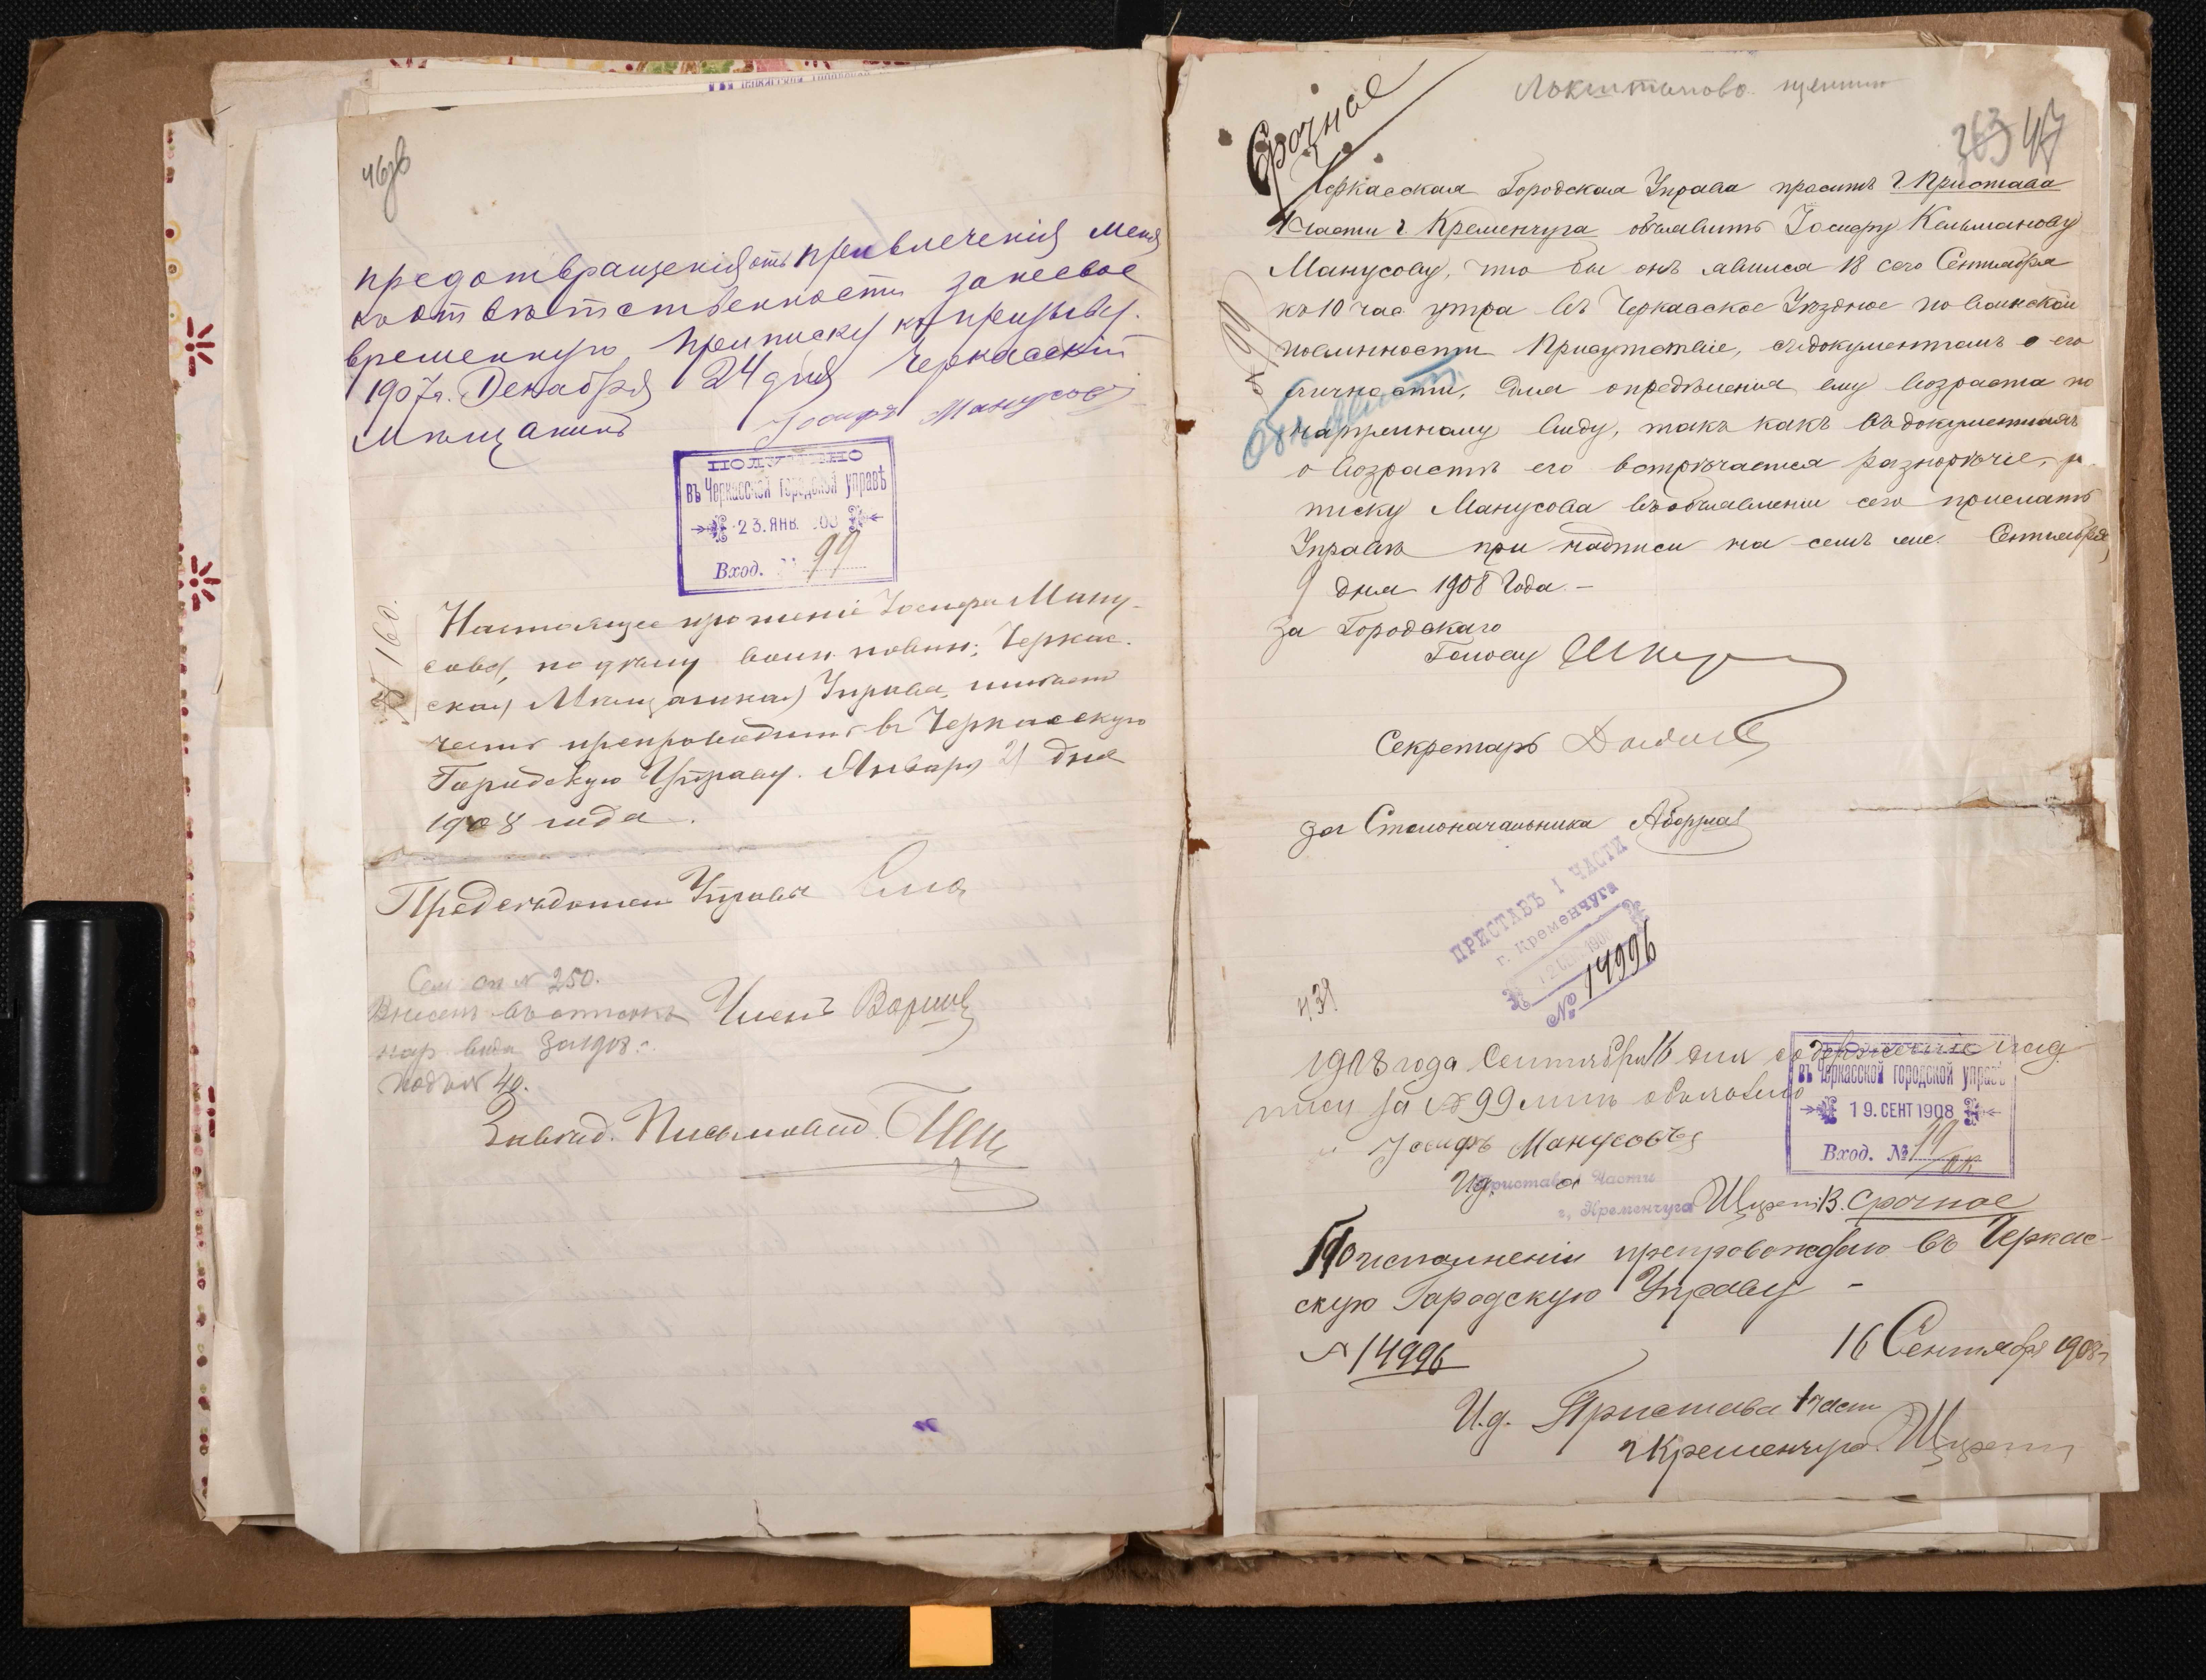 46об
предотвращенія отъ привлеченія меня
къ отвѣтственности за несвое
временную приписку къ призыву.
1907 г. Декабря 24 дня Черкасскій
Мѣщанинъ Іосифъ Манусовъ
ПОЛУЧЕНО
въ Черкасской городской управѣ
23. ЯНВ.
Вход. 99
№ 160.
Настоящее прошеніе Іосифа Ману-
сова, по дѣлу воин. повин., Черкас-
ская Мѣщанская Управа, имѣетъ
честь препроводить въ Черкасскую
Городскую Управу. Января 21 дня
1908 года.
Предсѣдатель Управы
Сем сп № 250.
Внесенъ въ списокъ
нар. вида за 1908 г.
подъ № 40.
Членъ
Завѣд. Письмовод.
Срочное
263 47
Черкасская Городская Управа проситъ г. Пристава
1 части г. Кременчуга объявить Іосифу Кельманову
Манусову, что бы онъ явился 18 сего Сентября
къ 10 час утра въ Черкасское Уѣздное по воинской
повинности Присутствіе, съ документами о его
личности, для опредѣленія ему возраста по
наружному виду, такъ какъ въ документахъ
о возрастѣ его встрѣчается разнорѣчіе,
писку Манусова въ объявленіи сего прислать
Управѣ при надписи на семъ же. Сентября
9 дня 1908 года -
№ 99
За Городского
Голову
Секретарь
За Столоначальника
ПРИСТАВЪ 1 ЧАСТИ
г. Кременчуга
№ 14996
439
1908 года Сентября 16 дня содержаніе над
писи за № 99 мнѣ объявлено
Іосифъ Манусовъ
ПОЛУЧЕНО
въ Черкасской городской управѣ
19. СЕНТ 1908
Вход. № 19
И.д. Пристава 1 Части
г. Кременчуга
В. срочное
По исполненіи препровождаю въ Черкас-
скую Городскую Управу -
№ 14996
16 Сентября 1908 г.
И.д. Пристава 1 части
г. Кременчуга